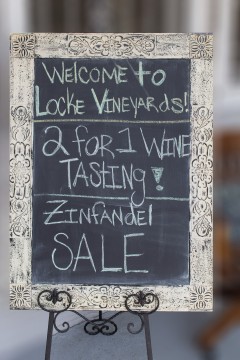 Welcome to
Locke Vineyards!
2 for 1 Wine
Tasting!
Zinfandel
SALE